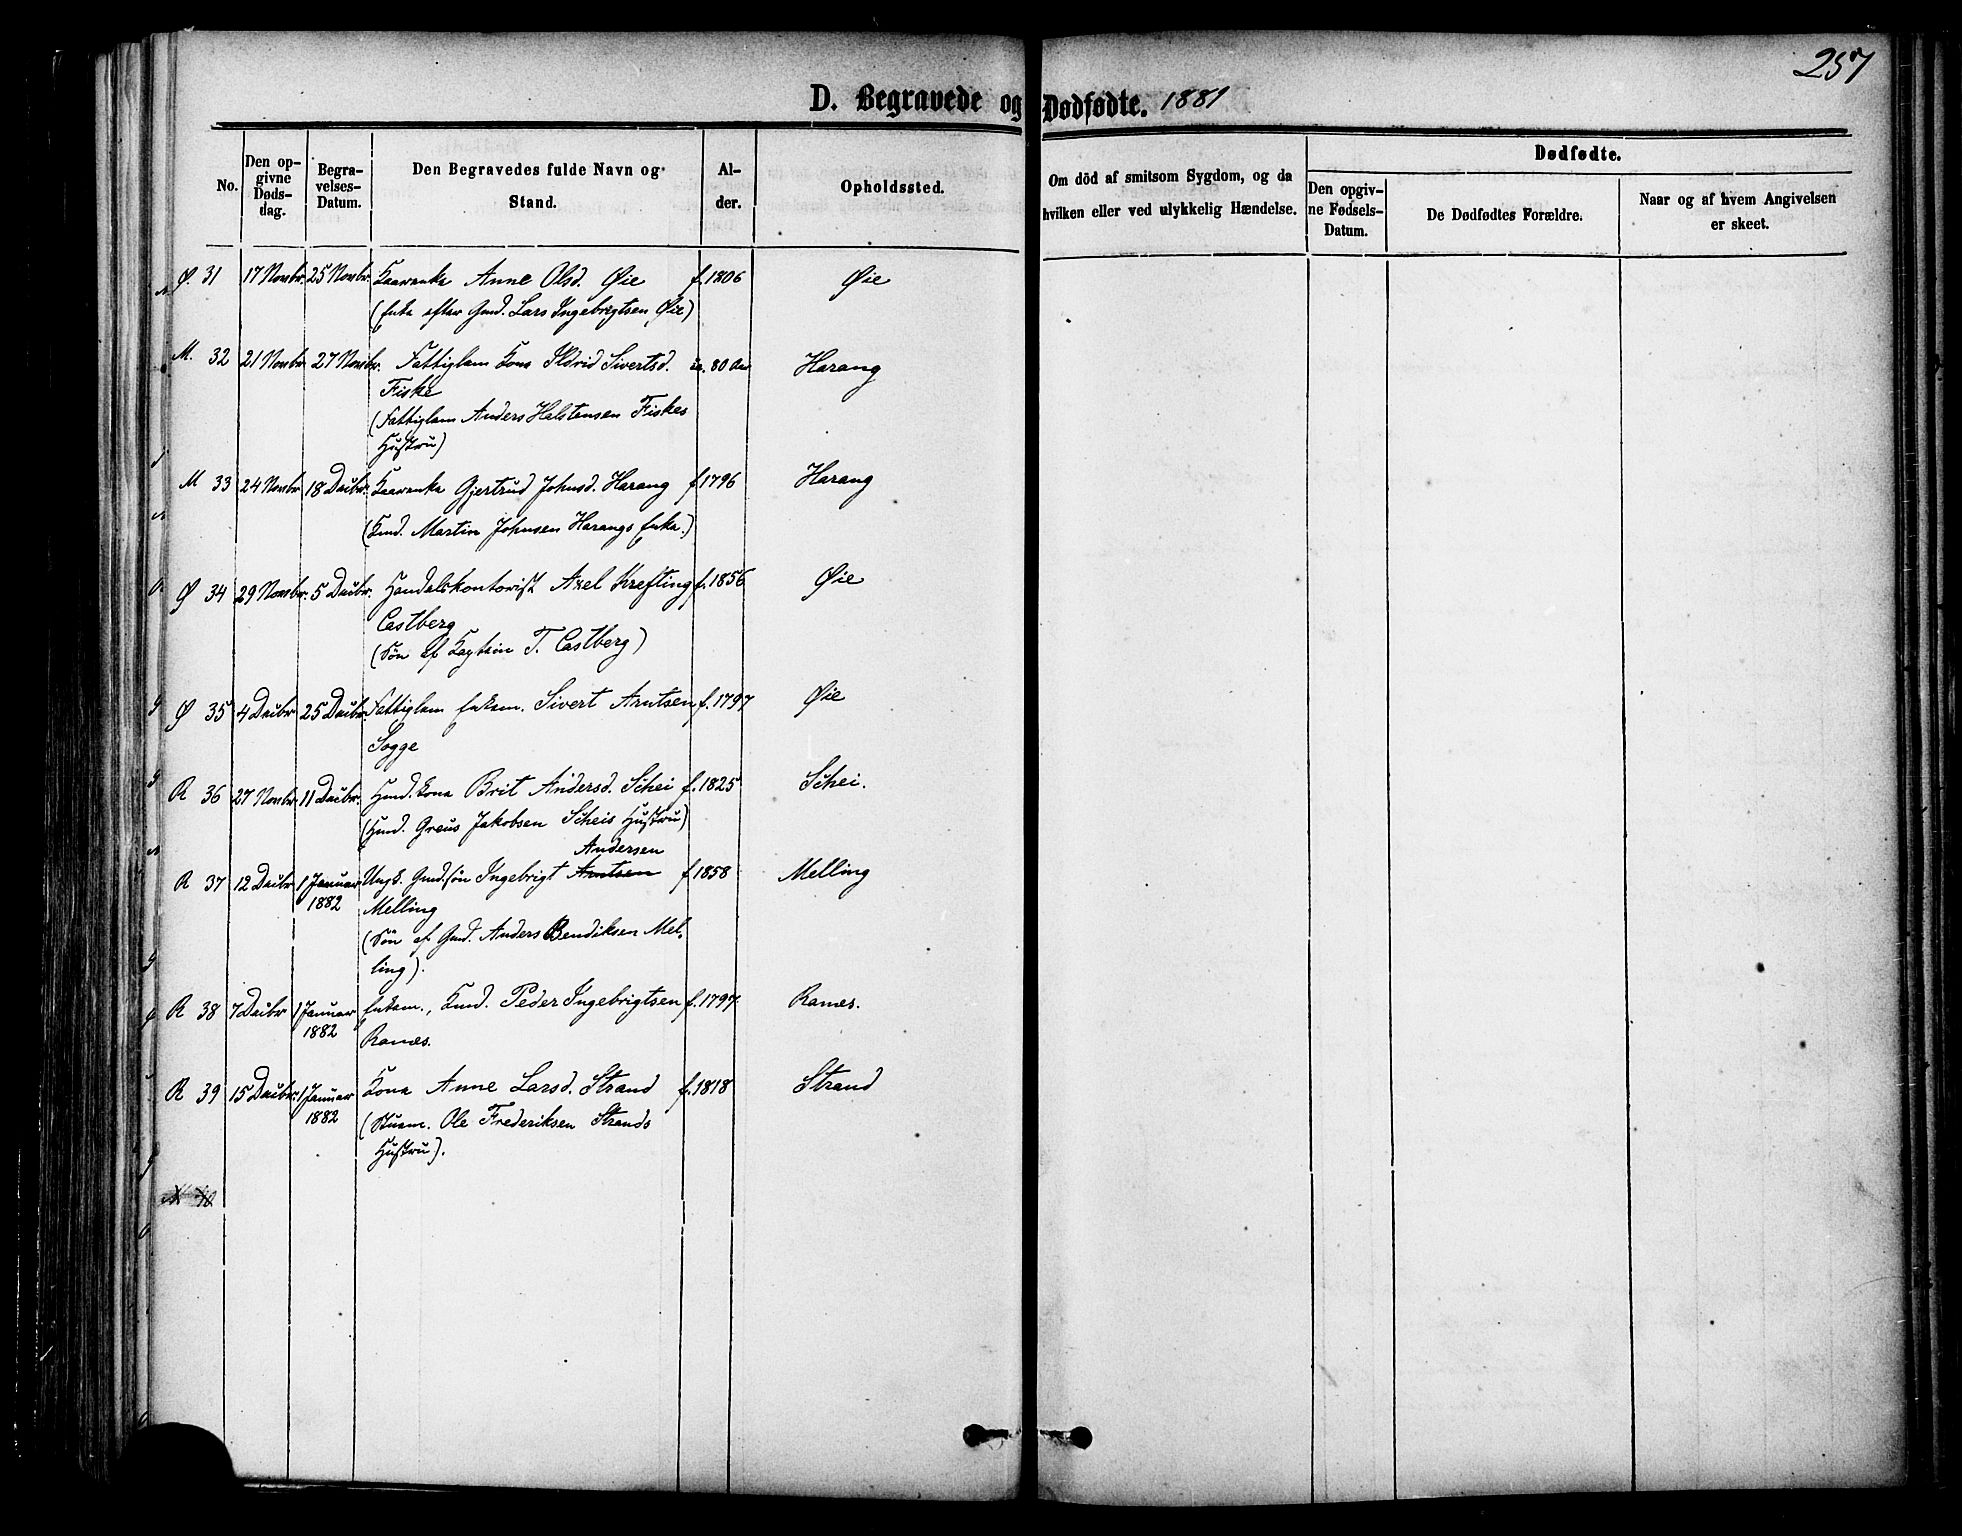 257
D. Begravede og Dødfødte. 1881
No.
Den op-
givne
Døds-
dag.
Begra-
velses-
Datum.
Den Begravedes fulde Navn og
Stand.
Al-
der.
Opholdssted.
Om död af smitsom Sygdom, og da
hvilken eller ved ulykkelig Hændelse.
Dødfødte.
Den opgiv-
ne Fødsels-
Datum.
De Dødfødtes Forældre.
Naar og af hvem Angivelsen
er skeet.
Ø. 31 17 Novbr. 25 Novbr. Kaarenke Anne Olsd. Øie f. 1806 Øie
(Enke efter Gmd. Lars Ingebrigtsen Øie)
M. 32 21 Novbr 27 Novbr. Fattiglem Kone Ildrid Sivertsd. ca. 80 Aar Harang
Fiske
(Fattiglem Anders Halstensen Fiskes
Hustru)
M 33 24 Novbr 18 Decbr. Kaarenke Gjertrud Johnsd. Harang f. 1796 Harang
(Kmd. Martin Johnsen Harangs Enke.)
Ø 34 29 Novbr. 5 Decbr. Handelskontorist Axel Krefting f. 1856 Øie
Castberg
(Søn af Kaptein T. Castberg)
Ø 35 4 Decbr 25 Decbr. Fattiglem Enkem. Sivert Arntsen f. 1797 Øie
Sogge
R 36 27 Novbr. 11 Decbr. Hmd. Kone Brit Andersd. Schei f. 1825 Schei.
(Hmd. Greus Jakobsen Scheis Hustru)
Andersen
R 37 12 Decbr 1 Januar Ungk. Gmd.søn Ingebrigt Arntsen f. 1858 Melling
1882 Melling
(Søn af Gmd. Anders Bendiksen Mel-
ling).
R 38 7 Decbr 1 Januar Enkem., Kmd. Peder Ingebrigtsen f. 1797. Ranes.
1882 Ranes.
R 39 15 Decbr. 1 Januar Kone Anne Larsd. Strand f. 1818 Strand
1882 (Husm. Ole Frederiksen Strands
Hustru).
M 40